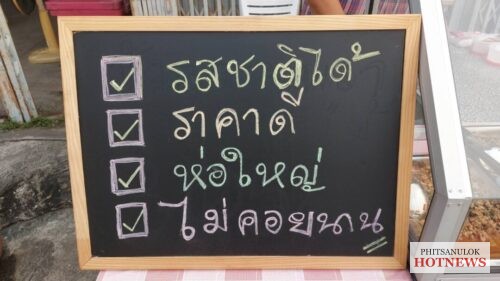 รสชาติได้
ราคาดี
ห่อใหญ่
ไม่คอยนาน
PHITSANULOK
HOTNEWS